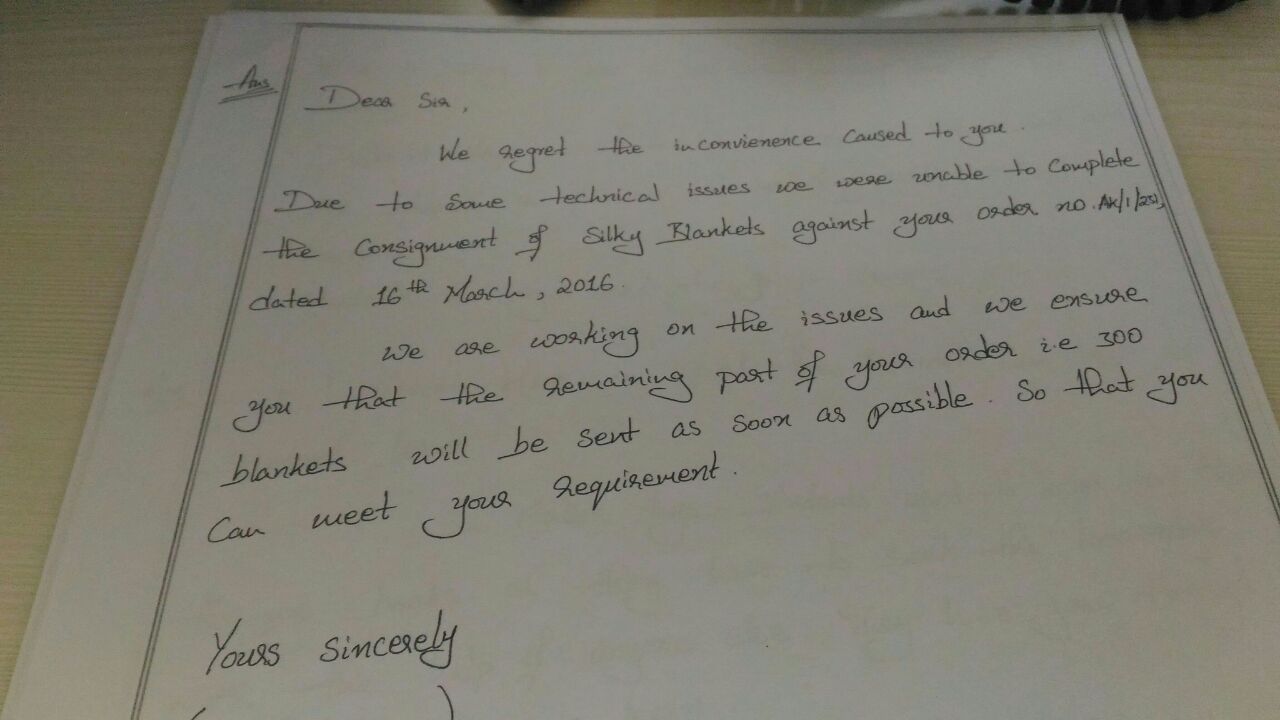 Ans
Dear Sir,
We regret the inconvienence caused to you.
Due to some technical issues we were unable to complete
the consignment of Silky Blankets against your order no.
dated 16th March, 2016.
We are working on the issues and we ensure
you that the remaining part of your order i.e 300
blankets will be sent as soon as possible. So that you
can meet your requirement.
Yours sincerely
( )